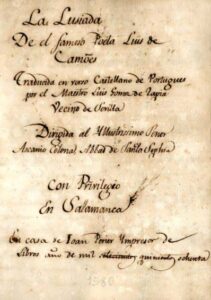 La Lusiada
De el famoso Poeta Luis de
Camões
Traducida en verso Castellano de Portugues
por el Maestro Luis Gomez de Tapia
Vecino de Sevilla
Dirigida al Yllustrissimo Señor
Ascanio Colona, Abbad de Santa Sophia
Con Privilegio
En Salamanca
En casa de Joan Perier Impresor de
Libros año de mil quinientos ochenta
1580